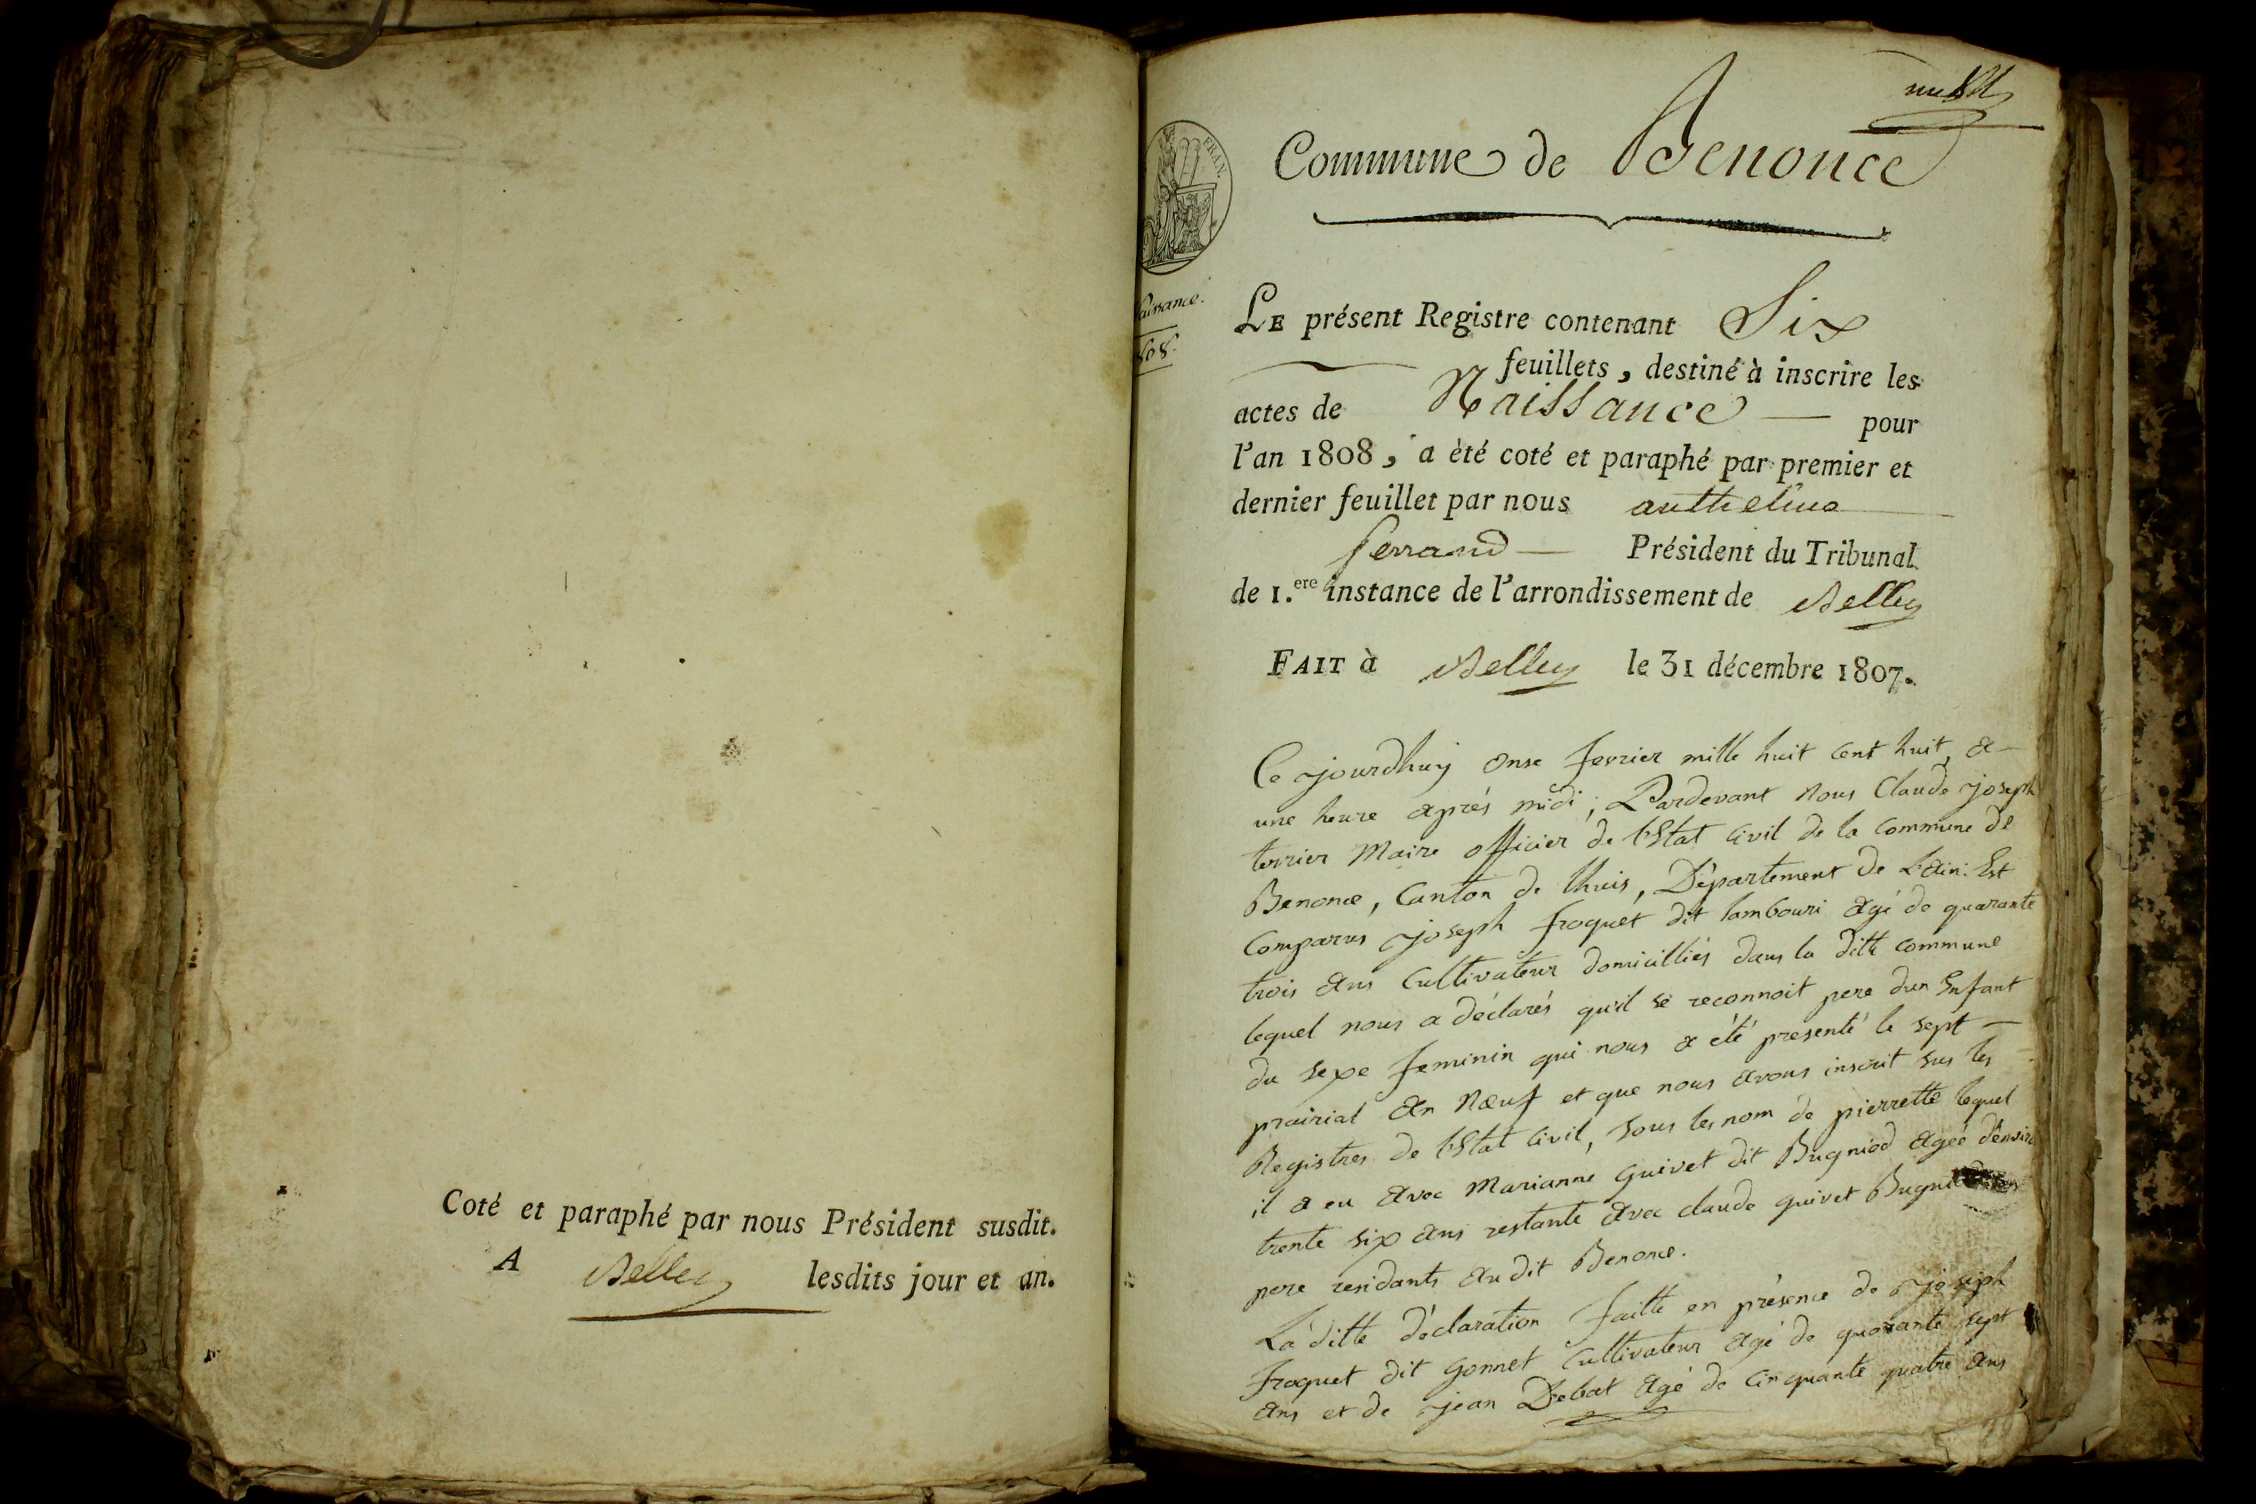 Coté et paraphé par nous Président susdit.
A Belley lesdits jour et an.
FRAN.
Naissance.
1808.
Commune de Benonce
LE présent Registre contenant Six
feuillets, destiné à inscrire les
actes de Naissance pour
l'an 1808, a été coté et paraphé par premier et
dernier feuillet par nous anthelme
ferrand Président du Tribunal
de 1.ere instance de l'arrondissement de Belley
FAIT à Belley le 31 décembre 1807.
Ce jourdhuy onse fevrier mille huit cent huit, a
une heure aprés midi; Pardevant nous Claude joseph
terrier Maire officier de l'Etat Civil de la Commune de
Benonce, Canton de lhuis, Département de L'ain: Est
Comparus joseph froquet dit tambouri agé de quarante
trois ans Cultivateur domicilliés dans la ditte commune
lequel nous a déclarés quil se reconnoit pere dun Enfant
du sexe feminin qui nous a été presenté le sept
prairial an Nœuf et que nous avons inscrit sus les
Registres de l'Etat Civil, sous les nom de pierrette lequel
il a eu avec Marianne Guivet dit Bugniod agée d'enviro
trente six ans restante avec claude guivet Bugniod
pere residants audit Benonce.
La ditte déclaration faitte en présence de joseph
froquet dit Gonnet Cultivateur agé de quarante sept
ans et de jean Debat agé de cinquante quatre ans